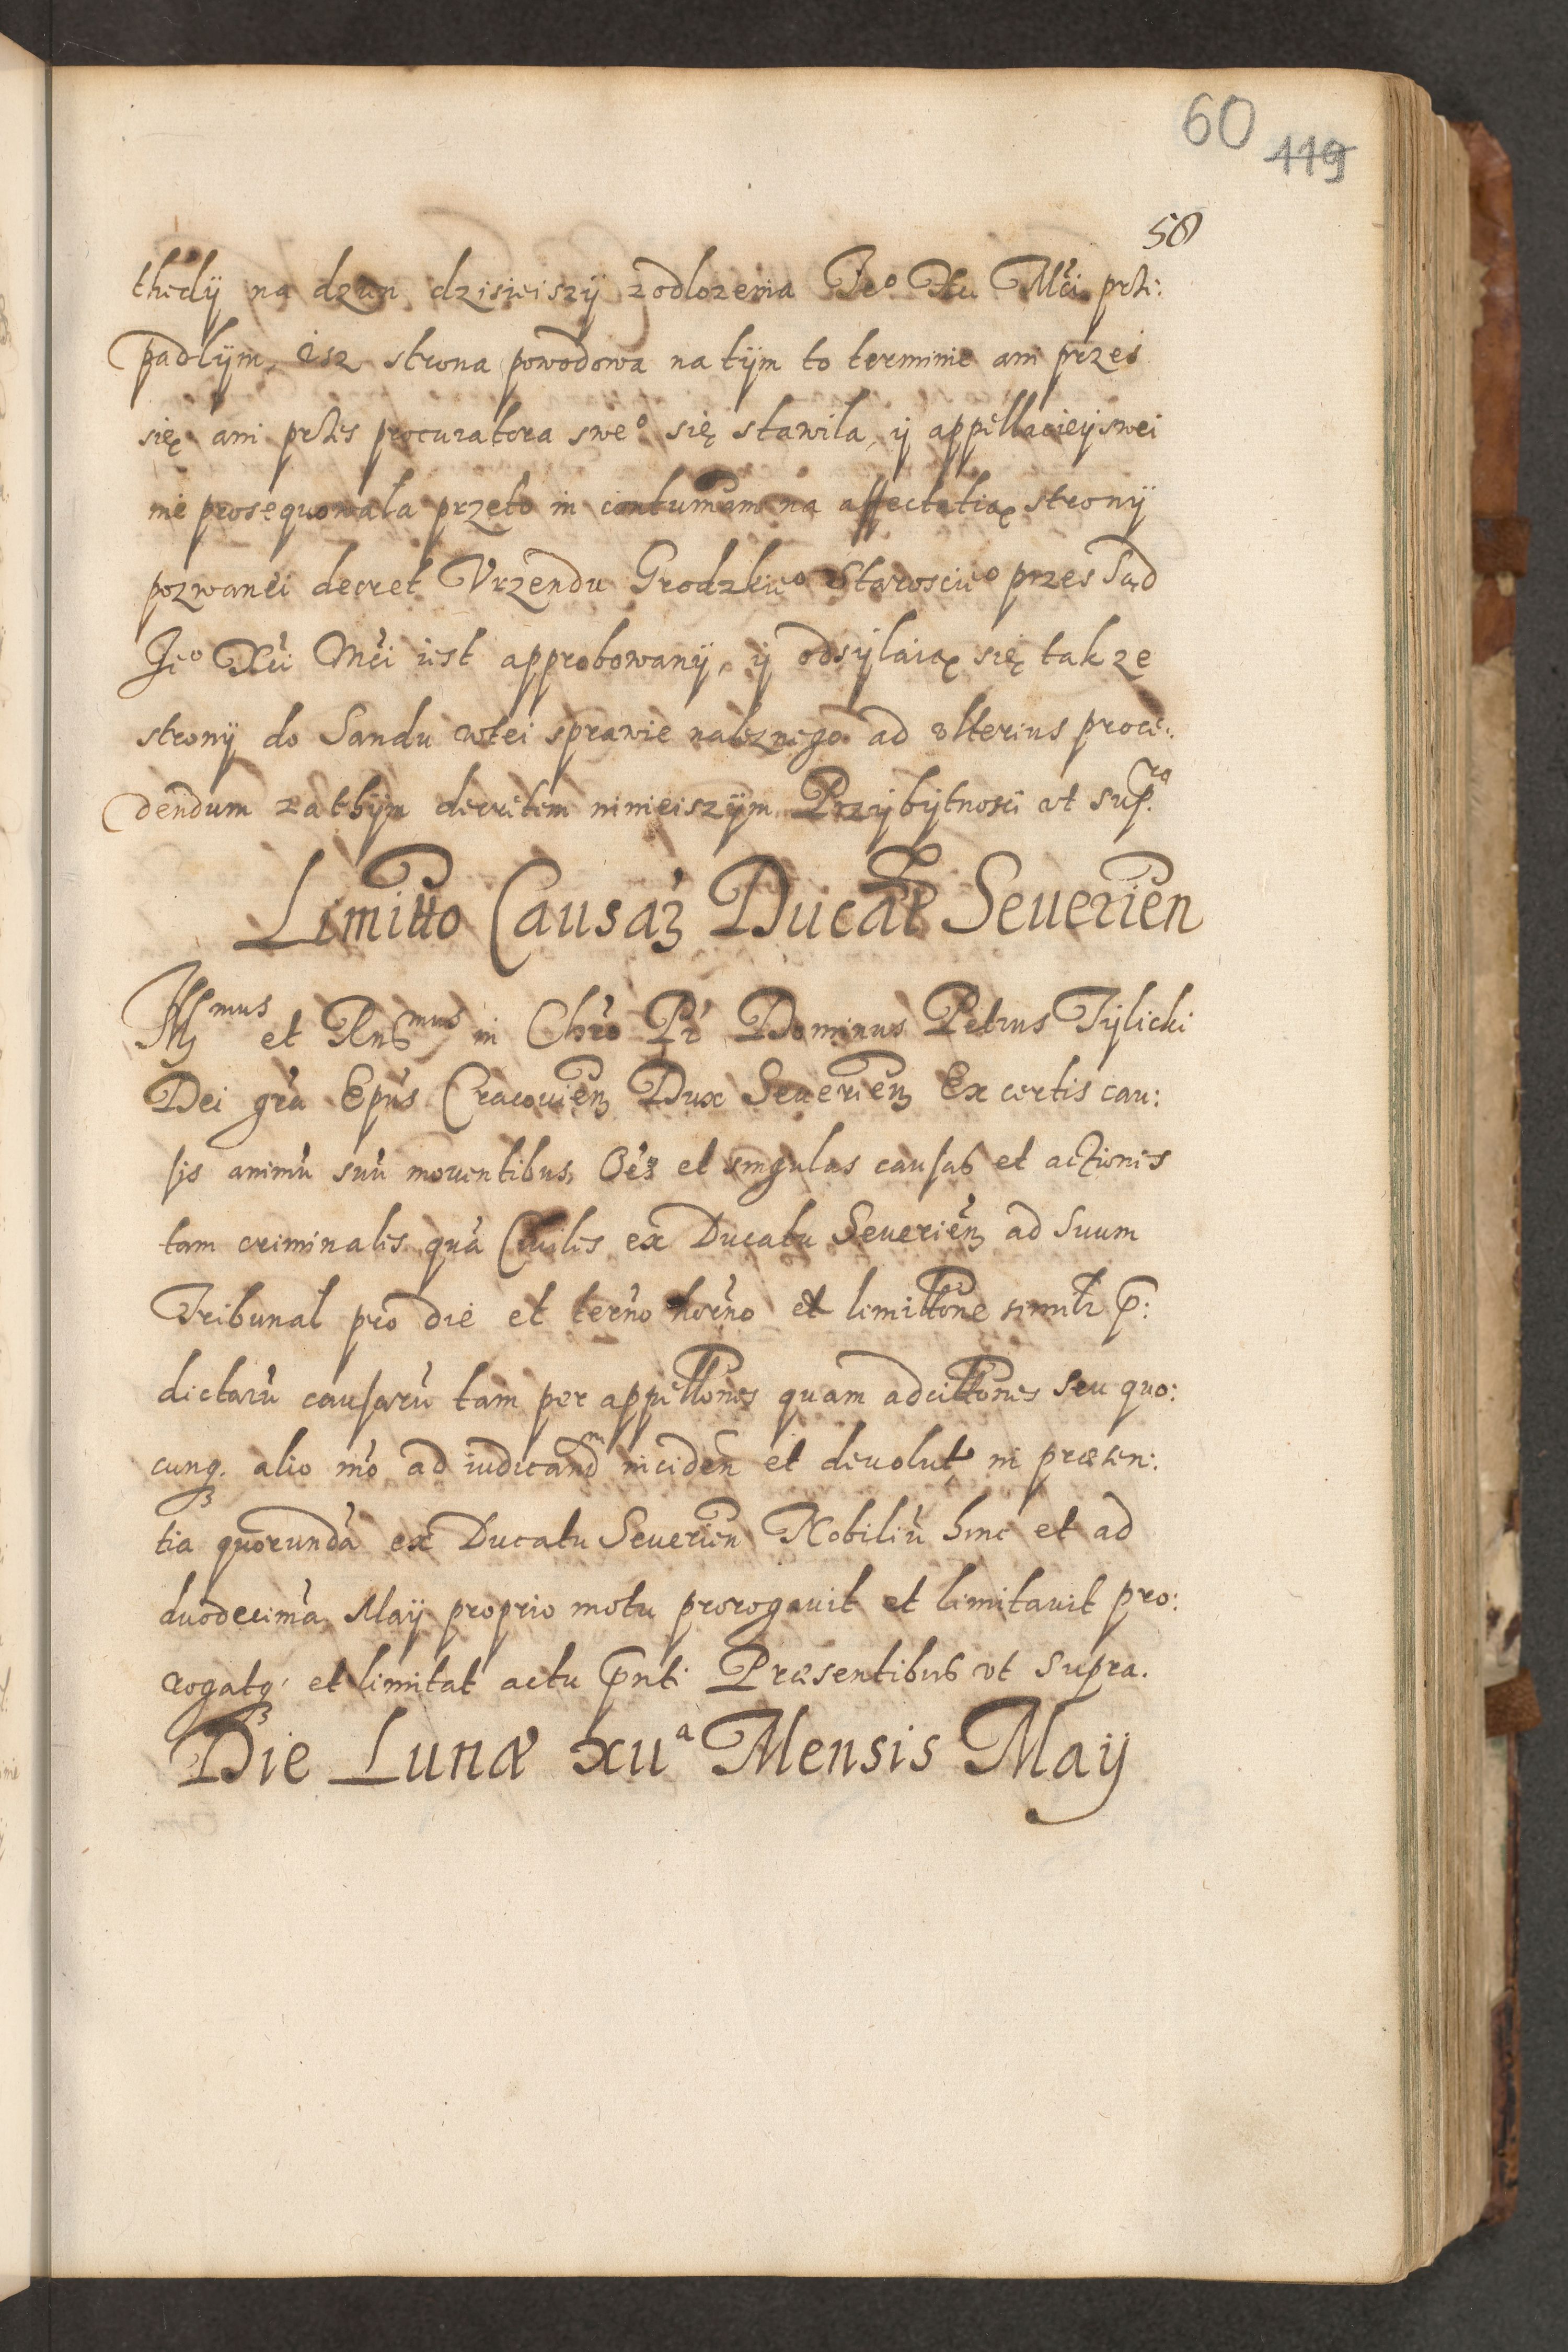 60 119
58
thedÿ na dzien dzisieiszÿ z odlozenia Je° Xu Mci prze:
padlÿm, isz strona powodowa na tÿm to terminie ani przes
się ani przes procuratora swe° się stawila, ÿ appellacieÿ swei
nie prosequowala przeto in contumam na affectatią stronÿ
pozwanei decret Vrzendu Grodzkie° Staroscie° przes Sąd
Je° Xci Mci iest approbowanÿ, ÿ odsÿlaią się takze
stronÿ do Sandu wtei sprawie naleznego ad vlterius proce:
dendum zathÿm decretem ninieiszÿm Przÿbÿtnosci vt sup.ra
Limitto Causaꝝ Ducat Seuerien
Illmus et Rndmus in Chro Pr Dominus Petrus Tÿlicki
Dei gra Epus Cracouien Dux Seuerien Ex certis cau:
sis animu suu mouentibus, Oes et singulas causas et actiones
tam criminales qua Ciuiles ex Ducatu Seuerien ad Suum
Tribunal pro die et terno horno et limittone simili p:
dictaru causaru tam per appellones quam adcittones seu quo:
cunq. alio mo ad iudicand inciden et deuolut in præsen:
tia quorunda ex Ducatu Seuerien Nobiliu hinc et ad
duodecima Maÿ proprio motu prorogauit et limitauit pro:
rogatq, et limitat actu pnti Præsentibus vt supra.
Die Lunæ xuª Mensis Maÿ